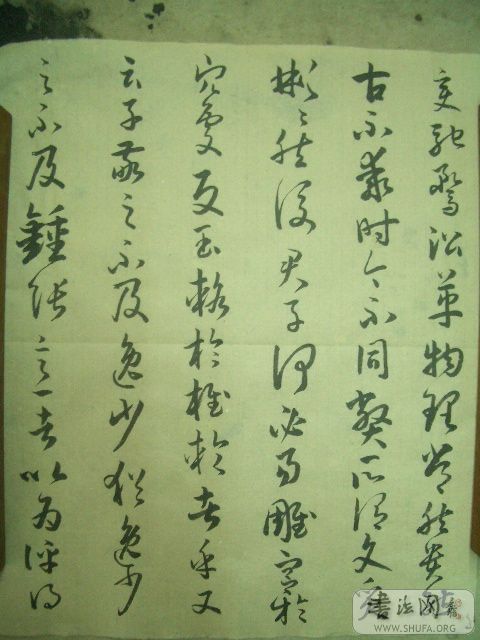 變馳騖沿革物理常然貴
古不乖時今不同弊所謂文
彬彬然後君子何必易雕宮於
穴處反玉輅於椎輪者乎又
云子敬之不及逸少猶逸少
之不及鍾張意者以為評得
書法网
WWW.SHUFA.ORG